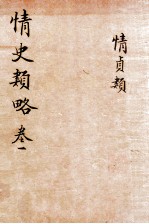 情史類略 卷一
情貞類